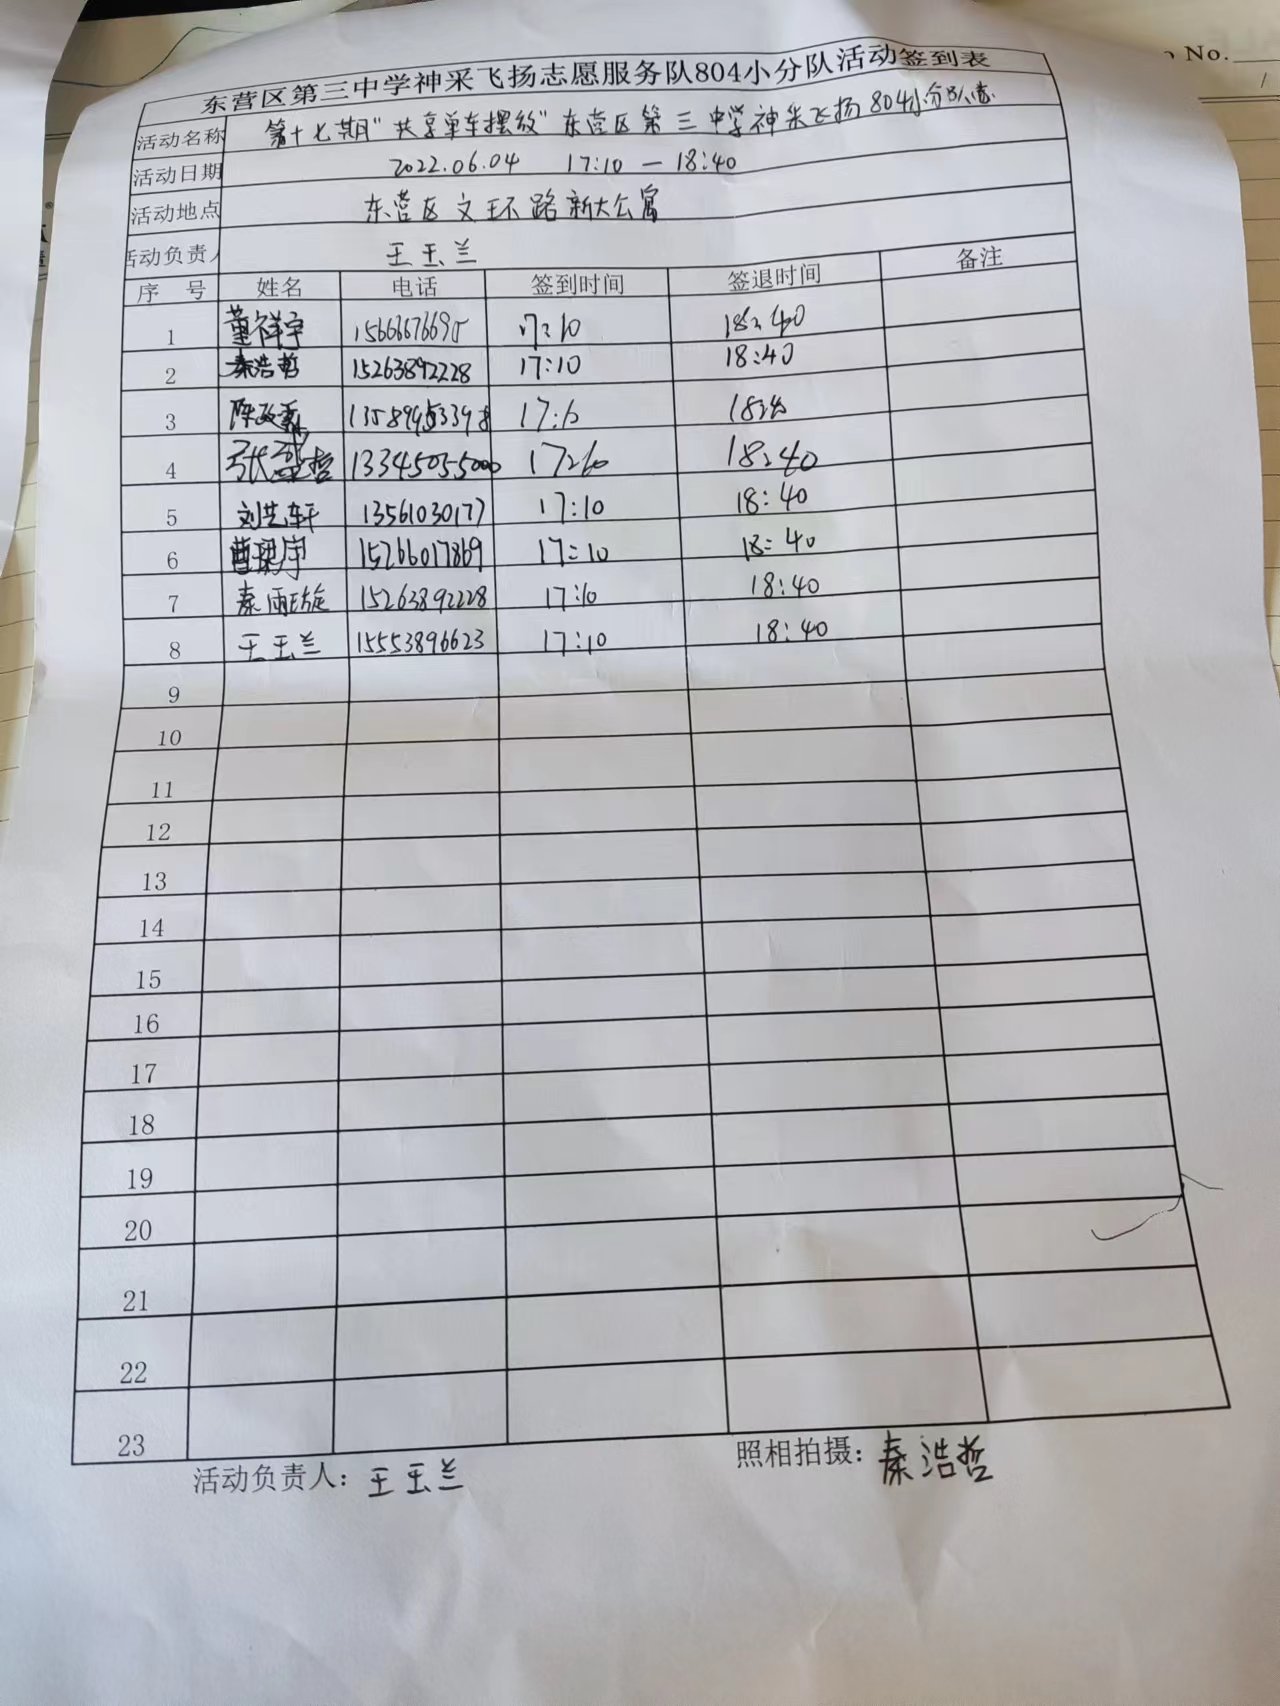 No.
东营区第三中学神采飞扬志愿服务队804小分队活动签到表
活动名称 第十七期"共享单车摆放"东营区第三中学神采飞扬804小分队
活动日期 2022.06.04 17:10 — 18:40
活动地点 东营区文环路新大公寓
活动负责人 王玉兰
序 号 姓名 电话 签到时间 签退时间 备注
1 董祥宇 15666676695 17:10 18:40
2 秦浩哲 15263892228 17:10 18:40
3 18:40
4 张 哲 13345055000 18:40
5 刘艺轩 13561030177 17:10 18:40
6 曹 15266017869 17:10 18:40
7 秦雨璇 15263892228 17:10 18:40
8 王玉兰 15553896623 17:10 18:40
9
10
11
12
13
14
15
16
17
18
19
20
21
22
23
活动负责人：王玉兰 照相拍摄：秦浩哲